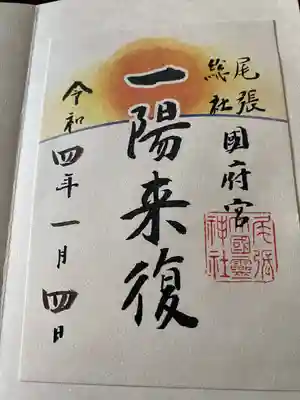 尾張
総社
国府宮
一陽来復
令和四年一月四日
尾張
大國靈
神社